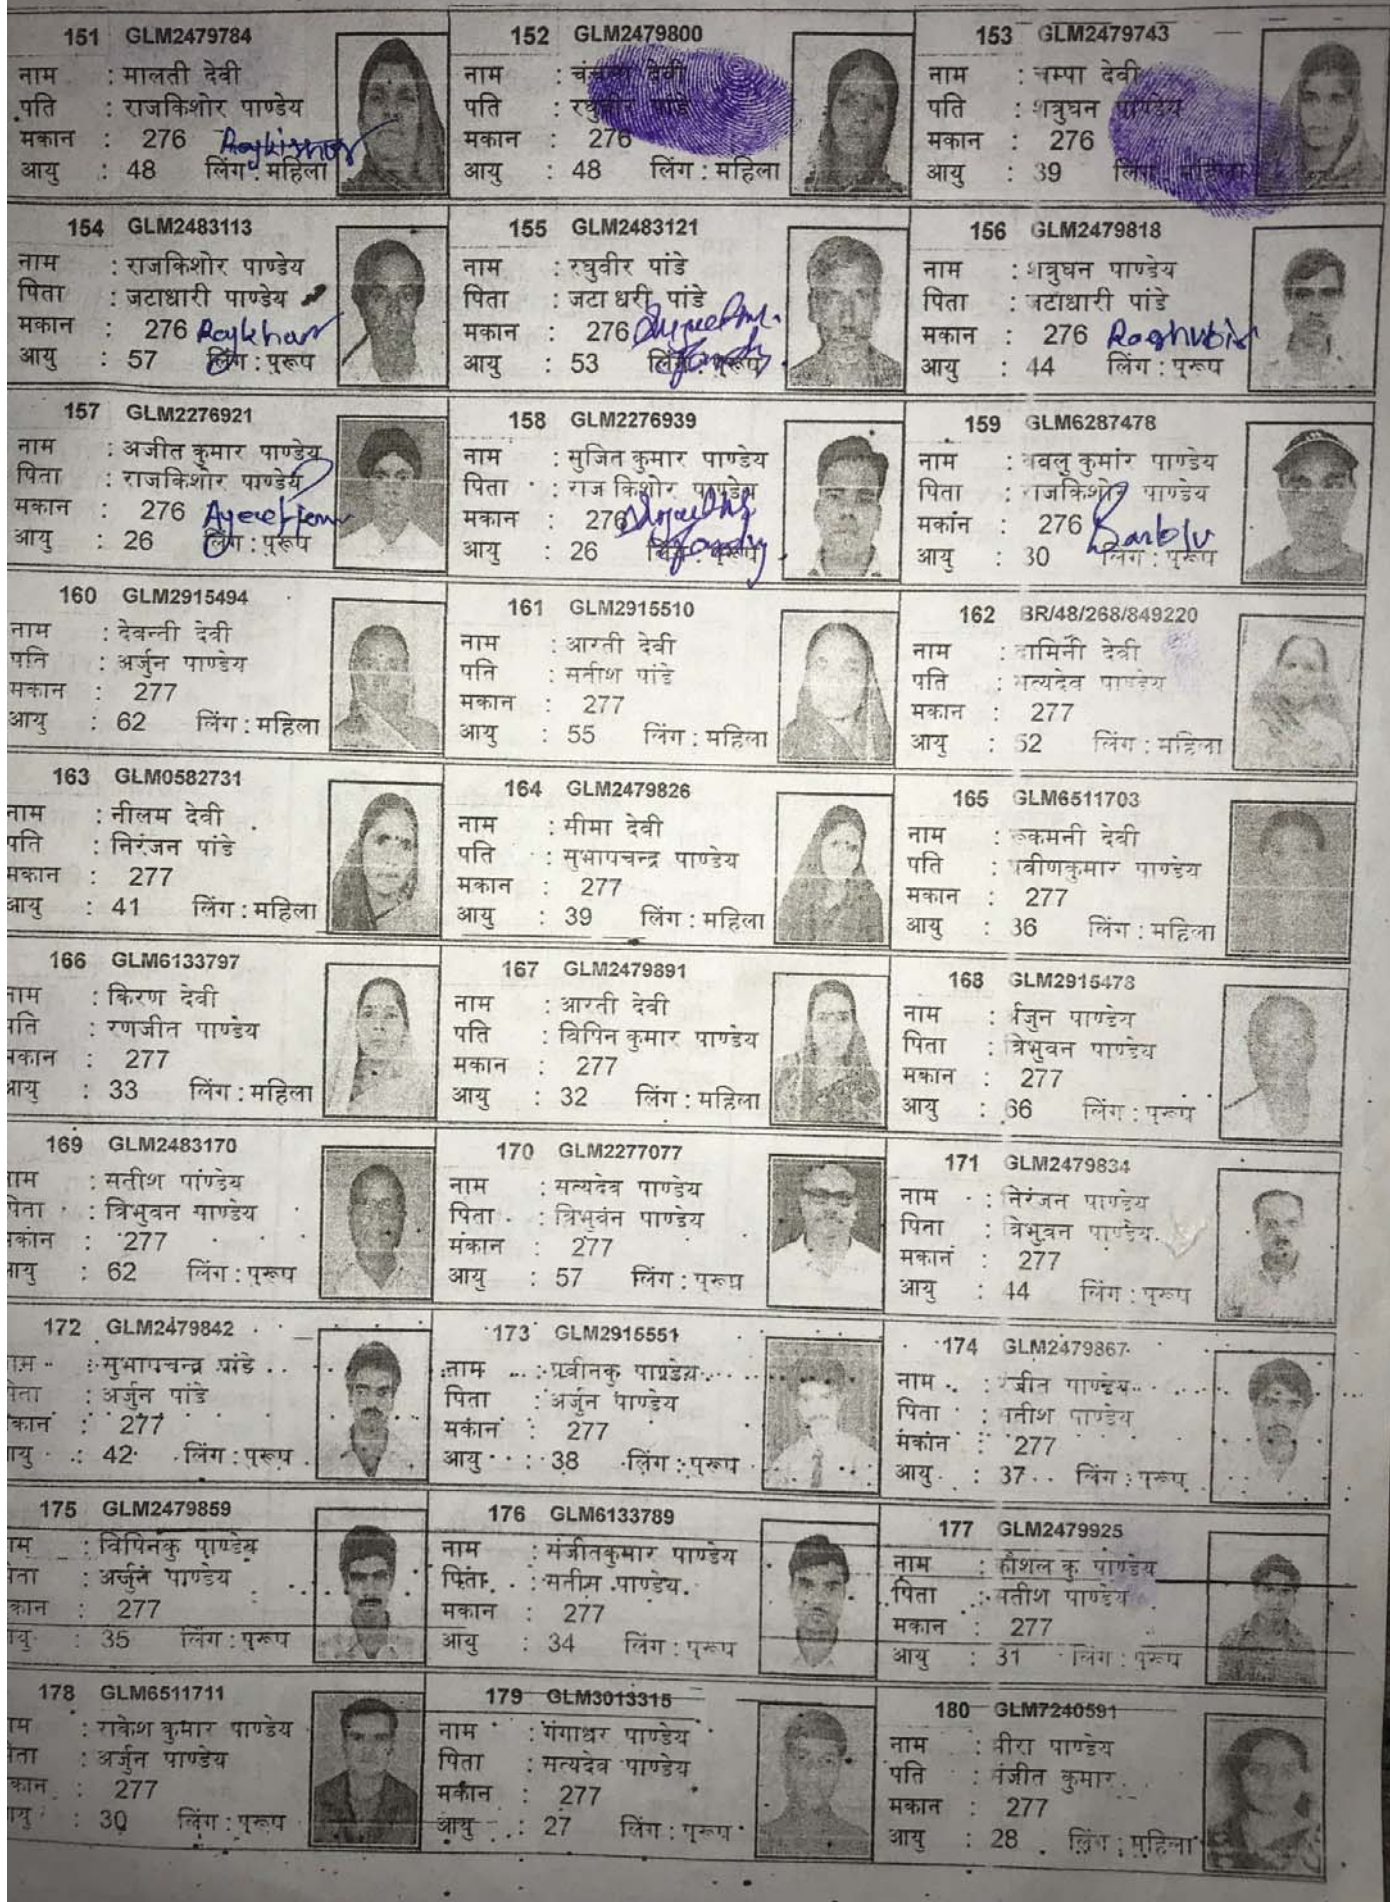 151 GLM2479784
नाम : मालती देवी
पति : राजकिशोर पाण्डेय
मकान : 276
आयु : 48 लिंग : महिला
152 GLM2479800
नाम : देवी
पति : रघुवीर पांडे
मकान : 276
आयु : 48 लिंग : महिला
153 GLM2479743
नाम : चम्पा देवी
पति : शत्रुघन पाण्डेय
मकान : 276
आयु : 39 लिंग : महिला
154 GLM2483113
नाम : राजकिशोर पाण्डेय
पिता : जटाधारी पाण्डेय
मकान : 276
आयु : 57 लिंग : पुरूष
155 GLM2483121
नाम : रघुवीर पांडे
पिता : जटा धरी पांडे
मकान : 276
आयु : 53 लिंग : पुरूष
156 GLM2479818
नाम : शत्रुघन पाण्डेय
पिता : जटाधारी पांडे
मकान : 276 Raghubir
आयु : 44 लिंग : पुरूष
157 GLM2276921
नाम : अजीत कुमार पाण्डेय
पिता : राजकिशोर पाण्डेय
मकान : 276
आयु : 26 लिंग : पुरूष
158 GLM2276939
नाम : सुजित कुमार पाण्डेय
पिता : राज किशोर पाण्डेय
मकान : 276
आयु : 26 लिंग : पुरूष
159 GLM6287478
नाम : ववलु कुमार पाण्डेय
पिता : राजकिशोर पाण्डेय
मकान : 276
आयु : 30 लिंग : पुरूष
160 GLM2915494
नाम : देवन्ती देवी
पति : अर्जुन पाण्डेय
मकान : 277
आयु : 62 लिंग : महिला
161 GLM2915510
नाम : आरती देवी
पति : सतीश पांडे
मकान : 277
आयु : 55 लिंग : महिला
162 BR/48/268/849220
नाम : दामिनी देवी
पति : सत्यदेव पाण्डेय
मकान : 277
आयु : 52 लिंग : महिला
163 GLM0582731
नाम : नीलम देवी
पति : निरंजन पांडे
मकान : 277
आयु : 41 लिंग : महिला
164 GLM2479826
नाम : सीमा देवी
पति : सुभाषचन्द्र पाण्डेय
मकान : 277
आयु : 39 लिंग : महिला
165 GLM6511703
नाम : रूकमनी देवी
पति : प्रवीणकुमार पाण्डेय
मकान : 277
आयु : 36 लिंग : महिला
166 GLM6133797
नाम : किरण देवी
पति : रणजीत पाण्डेय
मकान : 277
आयु : 33 लिंग : महिला
167 GLM2479891
नाम : आरती देवी
पति : विपिन कुमार पाण्डेय
मकान : 277
आयु : 32 लिंग : महिला
168 GLM2915478
नाम : र्अजुन पाण्डेय
पिता : त्रिभुवन पाण्डेय
मकान : 277
आयु : 66 लिंग : पुरूष
169 GLM2483170
नाम : सतीश पांण्डेय
पिता : त्रिभुवन पाण्डेय
मकान : 277
आयु : 62 लिंग : पुरूष
170 GLM2277077
नाम : सत्यदेव पाण्डेय
पिता : त्रिभुवन पाण्डेय
मकान : 277
आयु : 57 लिंग : पुरूष
171 GLM2479834
नाम : निरंजन पाण्डेय
पिता : त्रिभुवन पाण्डेय
मकान : 277
आयु : 44 लिंग : पुरूष
172 GLM2479842
नाम : सुभाषचन्द्र पांडे
पिता : अर्जुन पांडे
मकान : 277
आयु : 42 लिंग : पुरूष
173 GLM2915551
नाम : प्रवीनकु पाण्डेय
पिता : अर्जुन पाण्डेय
मकान : 277
आयु : 38 लिंग : पुरूष
174 GLM2479867
नाम : रंजीत पाण्डेय
पिता : सतीश पाण्डेय
मकान : 277
आयु : 37 लिंग : पुरूष
175 GLM2479859
नाम : विपिनकु पाण्डेय
पिता : अर्जुन पाण्डेय
मकान : 277
आयु : 35 लिंग : पुरूष
176 GLM6133789
नाम : संजीतकुमार पाण्डेय
पिता : सतीस पाण्डेय
मकान : 277
आयु : 34 लिंग : पुरूष
177 GLM2479925
नाम : कौशल कु पाण्डेय
पिता : सतीश पाण्डेय
मकान : 277
आयु : 31 लिंग : पुरूष
178 GLM6511711
नाम : राकेश कुमार पाण्डेय
पिता : अर्जुन पाण्डेय
मकान : 277
आयु : 30 लिंग : पुरूष
179 GLM3013315
नाम : गंगाधर पाण्डेय
पिता : सत्यदेव पाण्डेय
मकान : 277
आयु : 27 लिंग : पुरूष
180 GLM7240591
नाम : मीरा पाण्डेय
पति : संजीत कुमार
मकान : 277
आयु : 28 लिंग : महिला